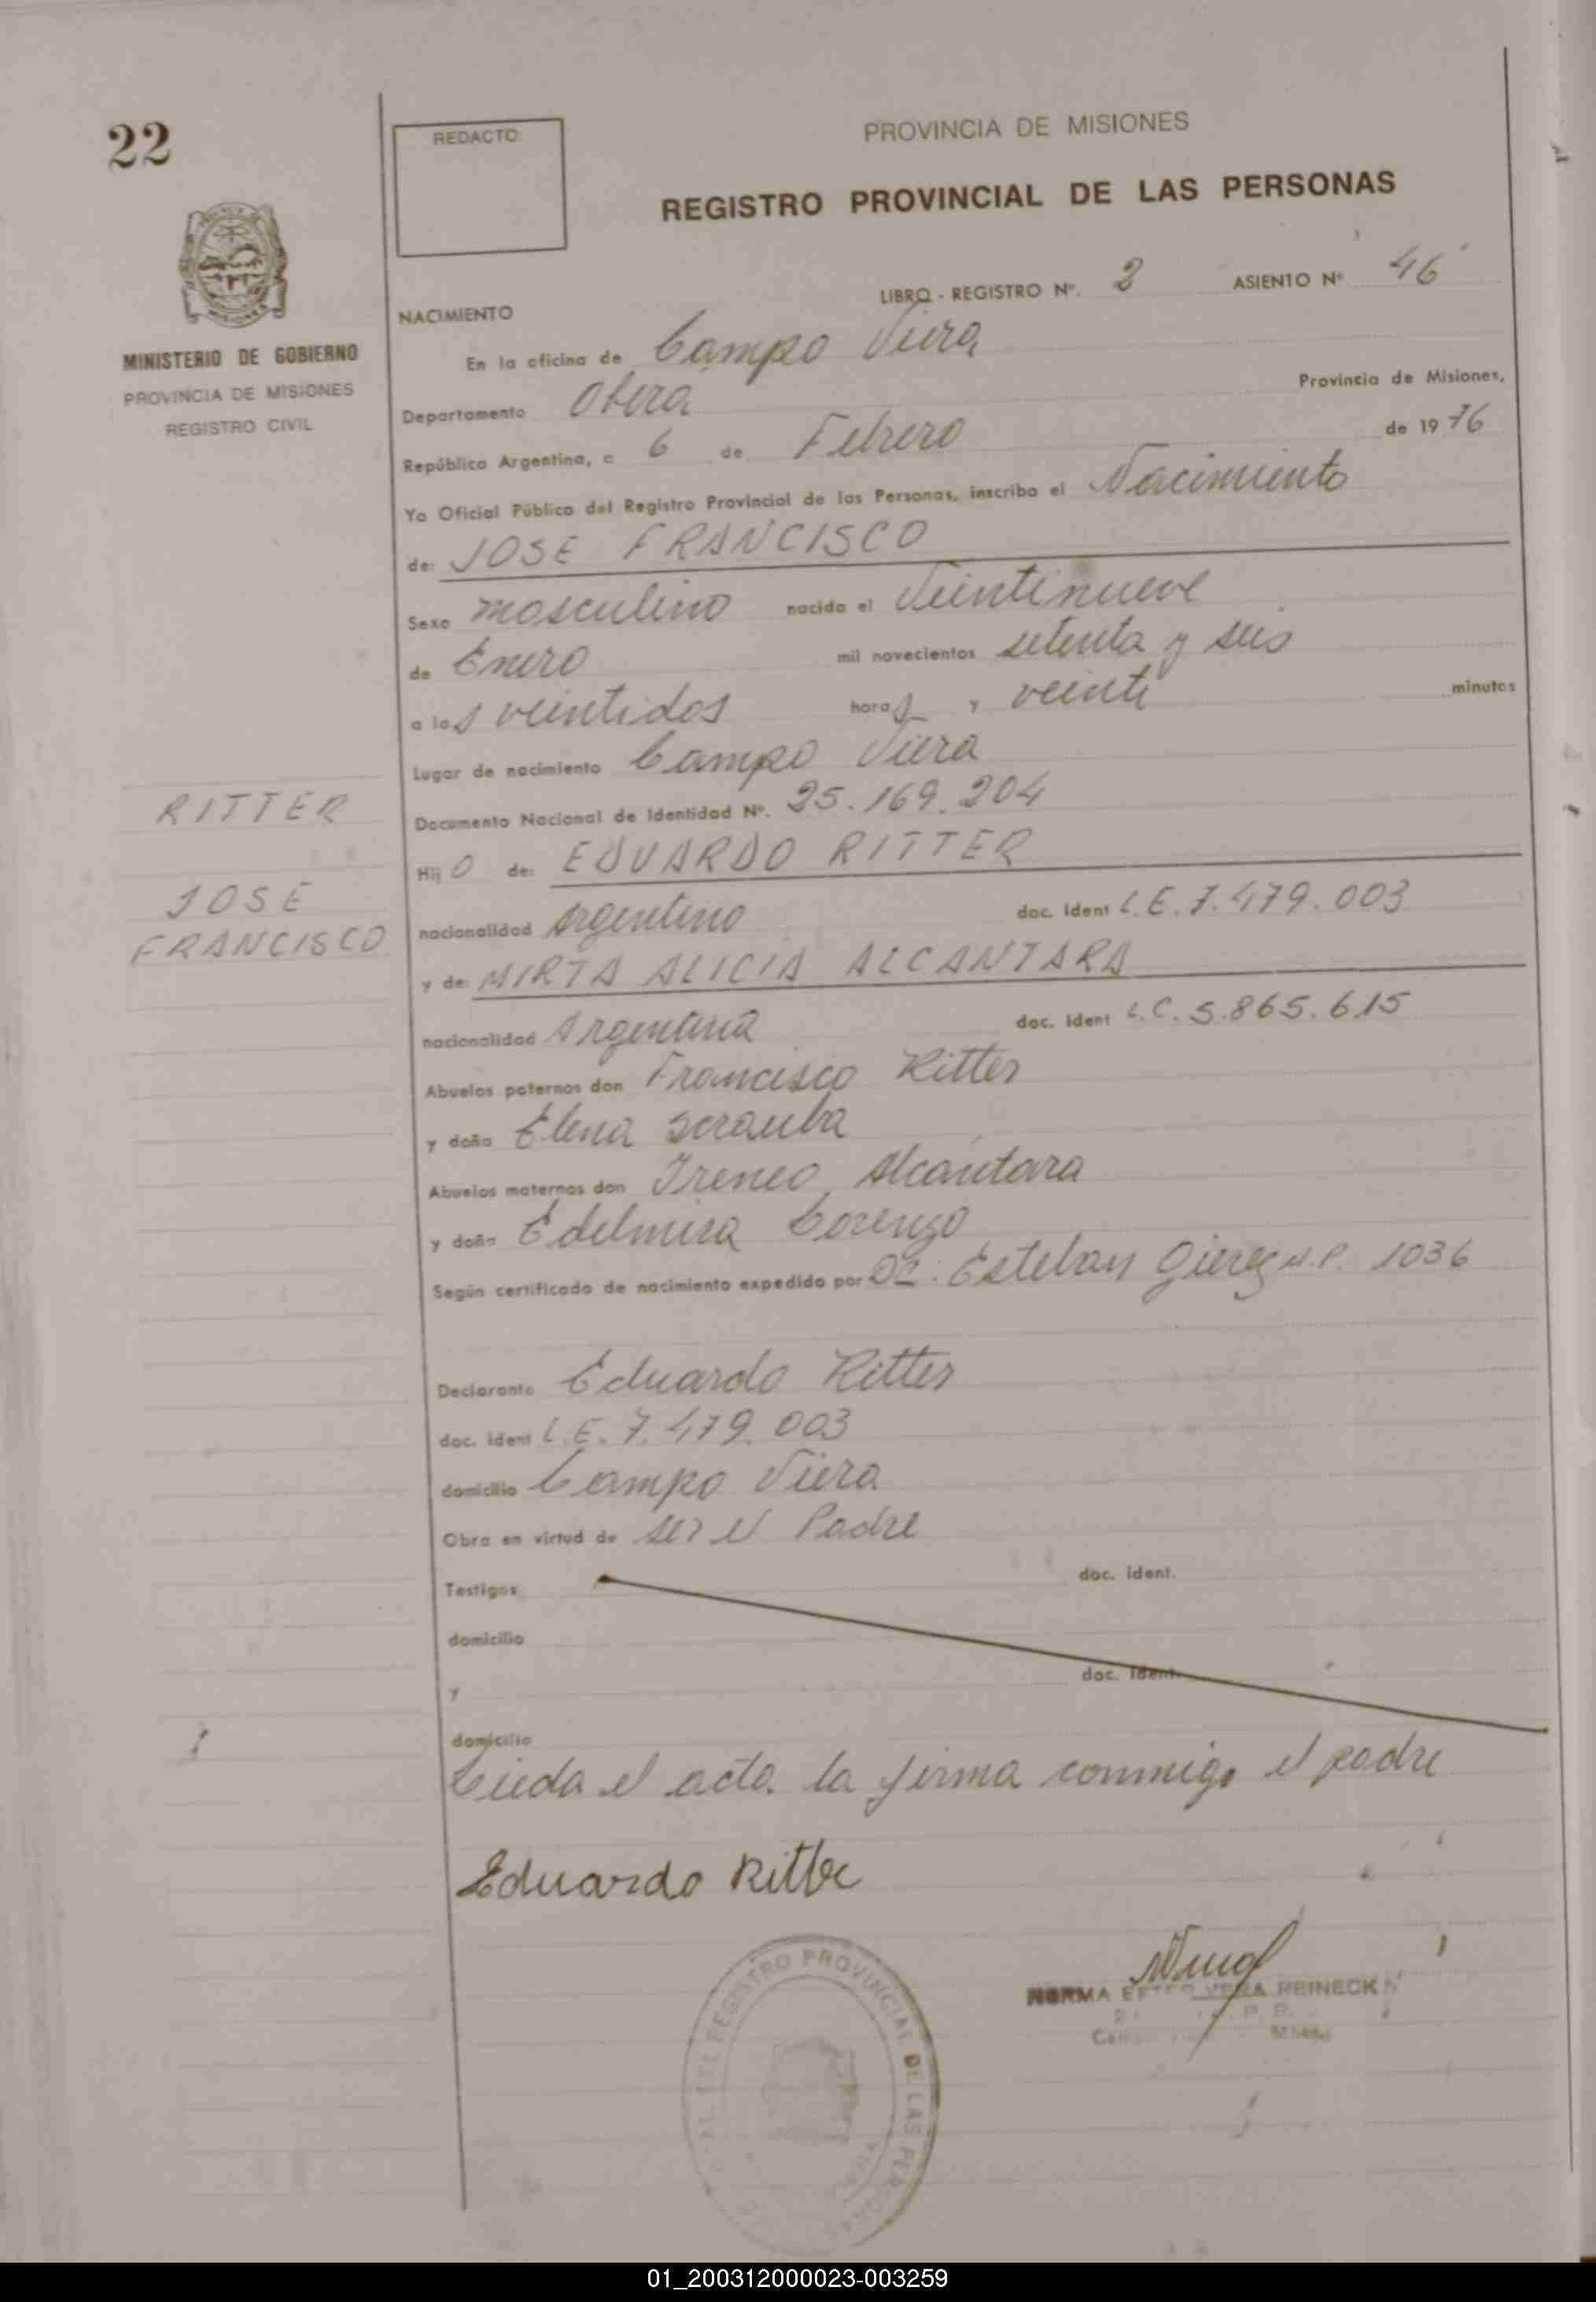 22
REDACTO:
PROVINCIA DE MISIONES
REGISTRO PROVINCIAL DE LAS PERSONAS
MINISTERIO DE GOBIERNO
PROVINCIA DE MISIONES
REGISTRO CIVIL
LIBRO - REGISTRO Nº. 2 ASIENTO Nº 46
NACIMIENTO
En la oficina de Campo Viera
Departamento Oberá Provincia de Misiones,
República Argentina, a 6 de Febrero de 1976
Yo Oficial Público del Registro Provincial de las Personas, inscribo el Nacimiento
de: JOSE FRANCISCO
Sexo masculino nacido el Veintinueve
de Enero mil novecientos setenta y seis
a las veintidos horas y veinte minutos
Lugar de nacimiento Campo Viera
RITTER
Documento Nacional de Identidad Nº. 25.169.204
Hijo de: EDUARDO RITTER
JOSE
FRANCISCO
nacionalidad Argentino doc. Ident L.E. 7.479.003
y de: MIRTA ALICIA ALCANTARA
nacionalidad Argentina doc. Ident L.C. 5.865.615
Abuelos paternos don Francisco Ritter
y doña Elena
Abuelos maternos don Ireneo Alcantara
y doña Edelmira
Según certificado de nacimiento expedido por Dr. Esteban M.P. 1036
Declarante Eduardo Ritter
doc. ident L.E. 7.479.003
domicilio Campo Viera
Obra en virtud de ser el Padre
Testigos doc. ident.
domicilio
y doc. ident.
domicilio
el acta la firma conmigo el padre
Eduardo Ritter
NORMA ESTER VERA REINECK
REGISTRO PROVINCIAL DE LAS PERSONAS
01_200312000023-003259